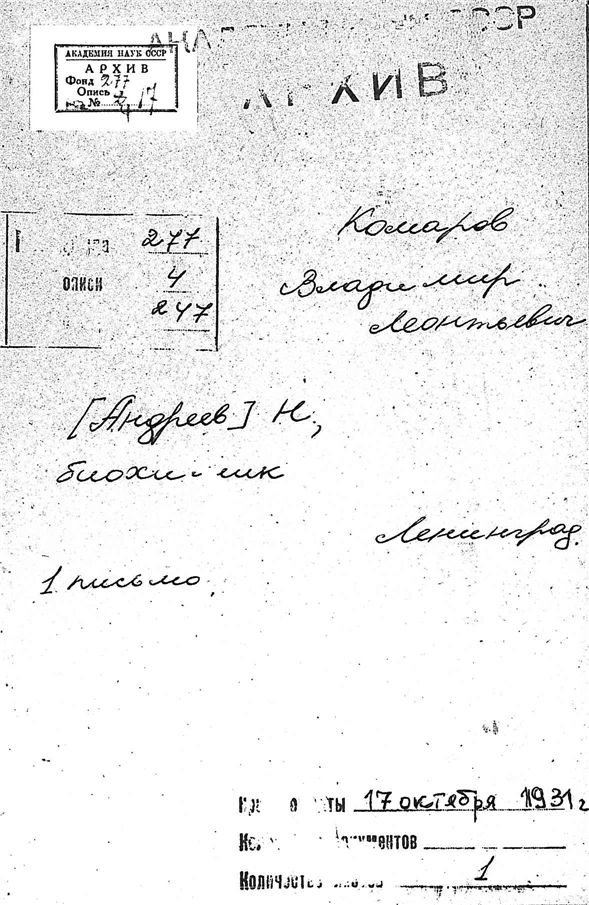 АКАДЕМИЯ НАУК СССР
АРХИВ
Фонд 277
Опись
№
СССР
АРХИВ
277
описи 4
247
Комаров
Владимир
Леонтьевич
[Андреев] Н,
биохимик
Ленинград.
1 письмо,
17 октября 1931 г
Количество 1